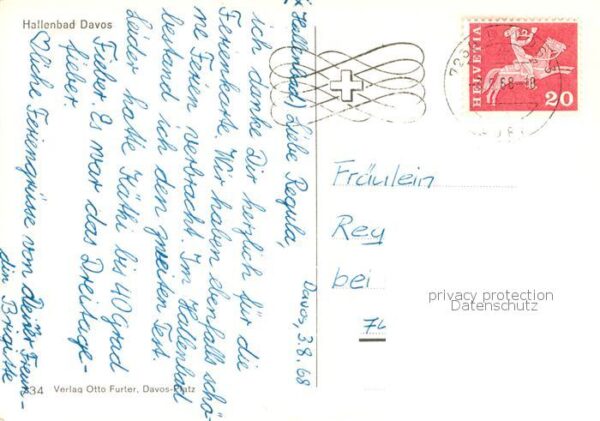 Hallenbad Davos
(* Hallenbad) Liebe Regula,
ich danke Dir herzlich für die
Ferienkarte. Wir haben ebenfalls schö-
ne Ferien verbracht. Im Hallenbad
bestand ich den zweiten Test.
Leider hatte Käthi bis 40 Grad
Fieber. Es war das Dreitage-
fieber.
liche Feriengrüsse von Deiner Freun-
din Brigitte
Davos, 3.8.68
HELVETIA
20
Fräulein
Rey
bei
privacy protection
Datenschutz
34 Verlag Otto Furter, Davos-Platz